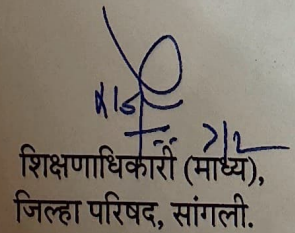 शिक्षणाधिकारी (माध्य),
जिल्हा परिषद, सांगली.